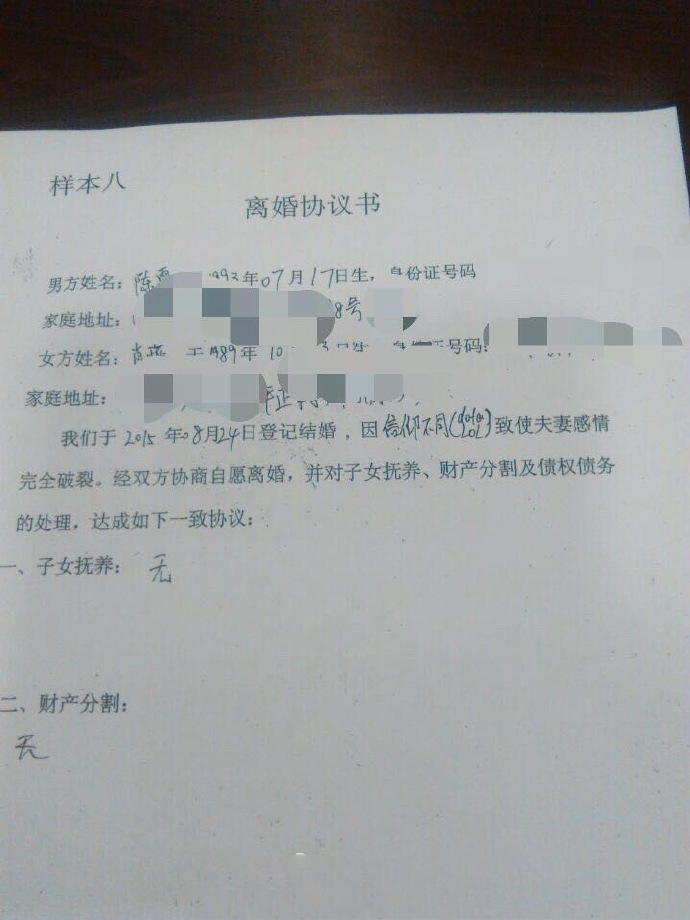 样本八
离婚协议书
男方姓名：陈 992年07月17日生，身份证号码
家庭地址： 8号
女方姓名：肖 989年10 3日生，身份证号码：
家庭地址：
我们于2015年08月24日登记结婚，因信仰不同(dota LOL)致使夫妻感情
完全破裂。经双方协商自愿离婚，并对子女抚养、财产分割及债权债务
的处理，达成如下一致协议：
一、子女抚养：无
二、财产分割：
无